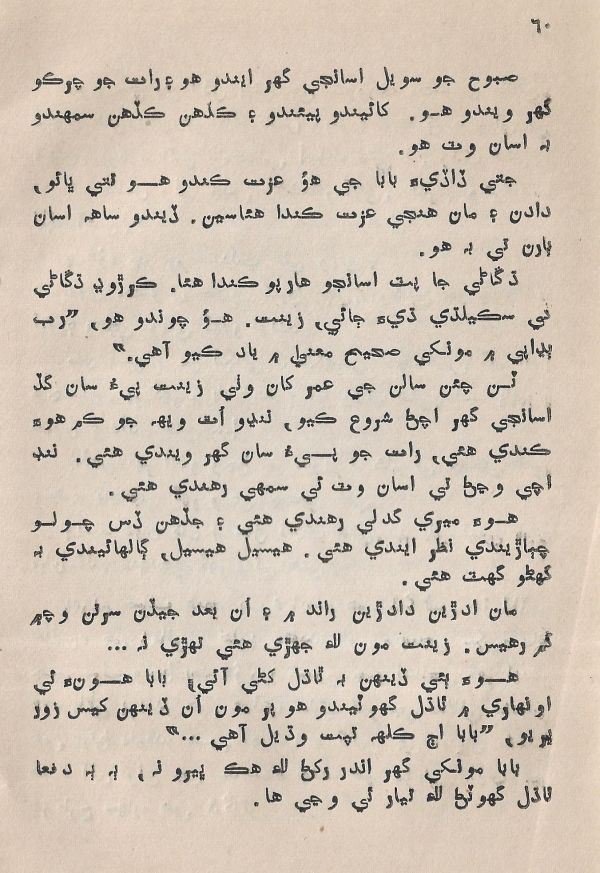 ٦٠
صبوح جو سويل اسانجي گهر ايندو هو ۽ رات جو چرڪو
گهر ويندو هو. کائيندو پيئندو ۽ ڪڏهن ڪڏهن سمهندو
به اسان وٽ هو.
جتي ڏاڏيءَ بابا جي هوُ عزت ڪندو هو تتي ڀائو،
دادن ۽ مان هنجي عزت ڪندا هئاسين. ڏيندو ساهه اسان
ٻارن تي به هو.
ڌڱاڻي جا پٽ اسانجو هارپو ڪندا هئا. ڪرڙوڍ ڌڱاڻي
تي سڪيلڌي ڌيءَ ڄائي، زينت. هوُ چوندو هو، ”رب
ٻڍاپي ۾ مونکي صحيح معنيٰ ۾ ياد ڪيو آهي.“
ٽن چئن سالن جي عمر کان وٺي زينت پيءُ سان گڏ
اسانجي گهر اچڻ شروع ڪيو، ننڍو اُٿ ويهه جو ڪم هوءَ
ڪندي هئي، رات جو پيءُ سان گهر ويندي هئي. ننڊ
اچي وڃڻ تي اسان وٽ ئي سمهي رهندي هئي.
هوءَ ميري گدلي رهندي هئي ۽ جڏهن ڏس چولو
چٻاڙيندي نظر ايندي هئي. هيسيل هيسيل، ڳالهائيندي به
گهڻو گهٽ هئي.
مان ادڙين دادڙين راند ۾ ۽ اُن بعد جيڏن سرتن وچ ۾
گم رهيس. زينت مون لاءِ جهڙي هئي تهڙي نه ...
هوءَ ٻئي ڏينهن به ٿاڌل کڻي آئي، بابا هونءَ ئي
اونهاري ۾ ٿاڌل گهوٽيندو هو پر مون اُن ڏينهن کيس زور
ڀريو، ”بابا اڄ ڪلهه تپت وڌيل آهي ...“
بابا مونکي گهر اندر رکڻ لاءِ هڪ ڀيرو نه، ٻه ٻه دفعا
ٿاڌل گهوٽڻ لاءِ تيار ٿي وڃي ها.